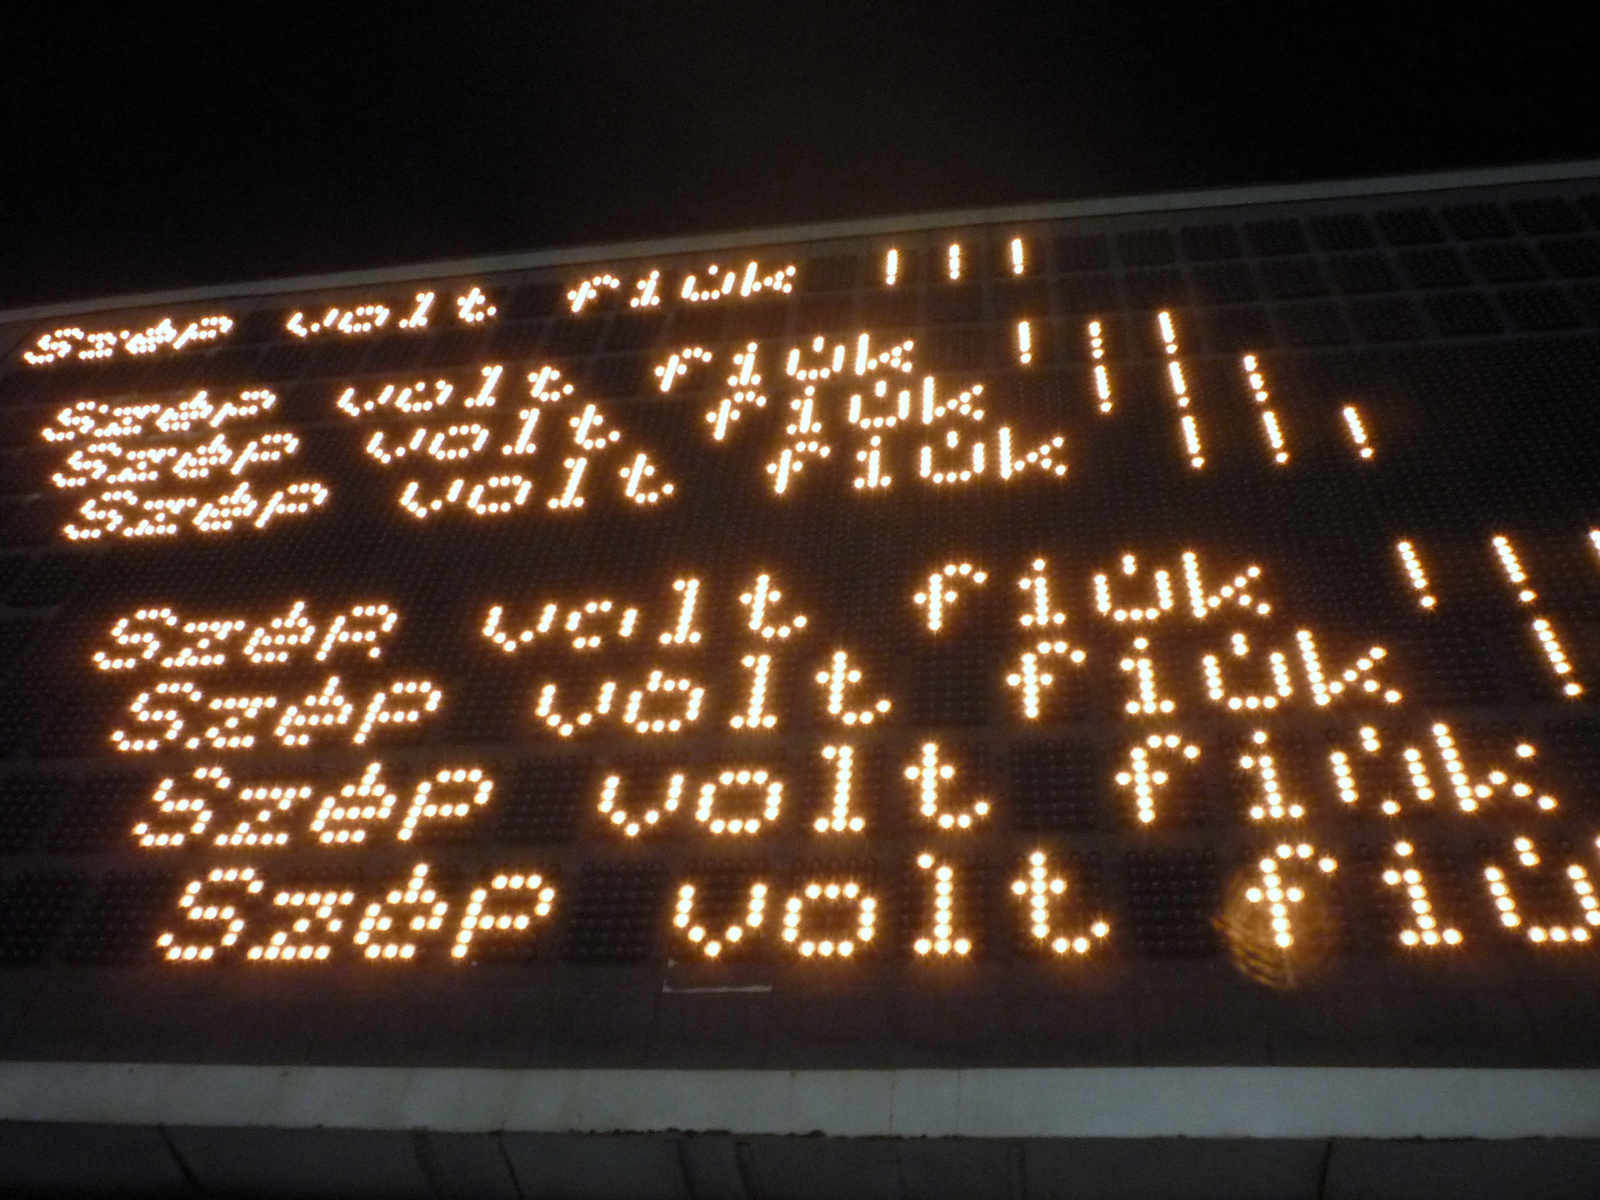 Szép volt fiúk !!!
Szép volt fiúk !!!
Szép volt fiúk !!!
Szép volt fiúk !!!
Szép volt fiúk !!!
Szép volt fiúk !
Szép volt fiúk
Szép volt fiú